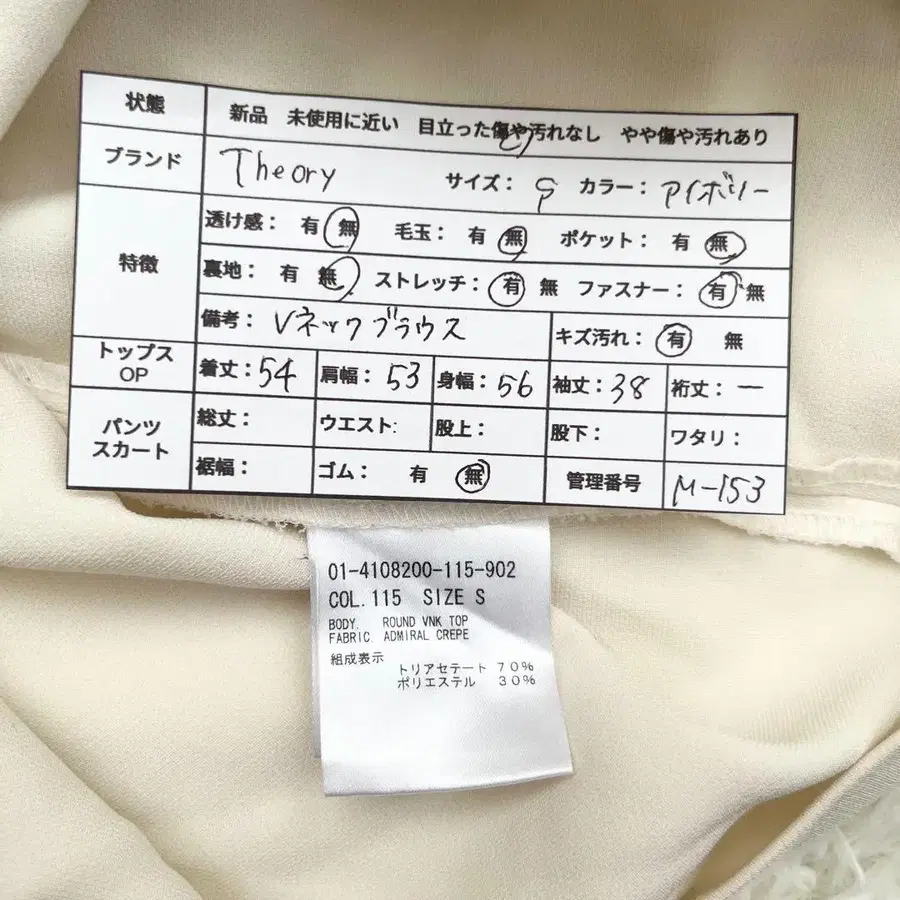 状態 新品 未使用に近い 目立った傷や汚れなし やや傷や汚れあり
ブランド Theory サイズ: S カラー: アイボリー
特徴 透け感: 有 無 毛玉: 有 無 ポケット: 有 無
裏地: 有 無 ストレッチ: 有 無 ファスナー: 有 無
備考: Vネックブラウス キズ汚れ: 有 無
トップス OP 着丈: 54 肩幅: 53 身幅: 56 袖丈: 38 裄丈: ー
パンツ スカート 総丈: ウエスト: 股上: 股下: ワタリ:
裾幅: ゴム: 有 無 管理番号 M-153
01-4108200-115-902
COL. 115 SIZE S
BODY. ROUND VNK TOP
FABRIC. ADMIRAL CREPE
組成表示
トリアセテート 70%
ポリエステル 30%